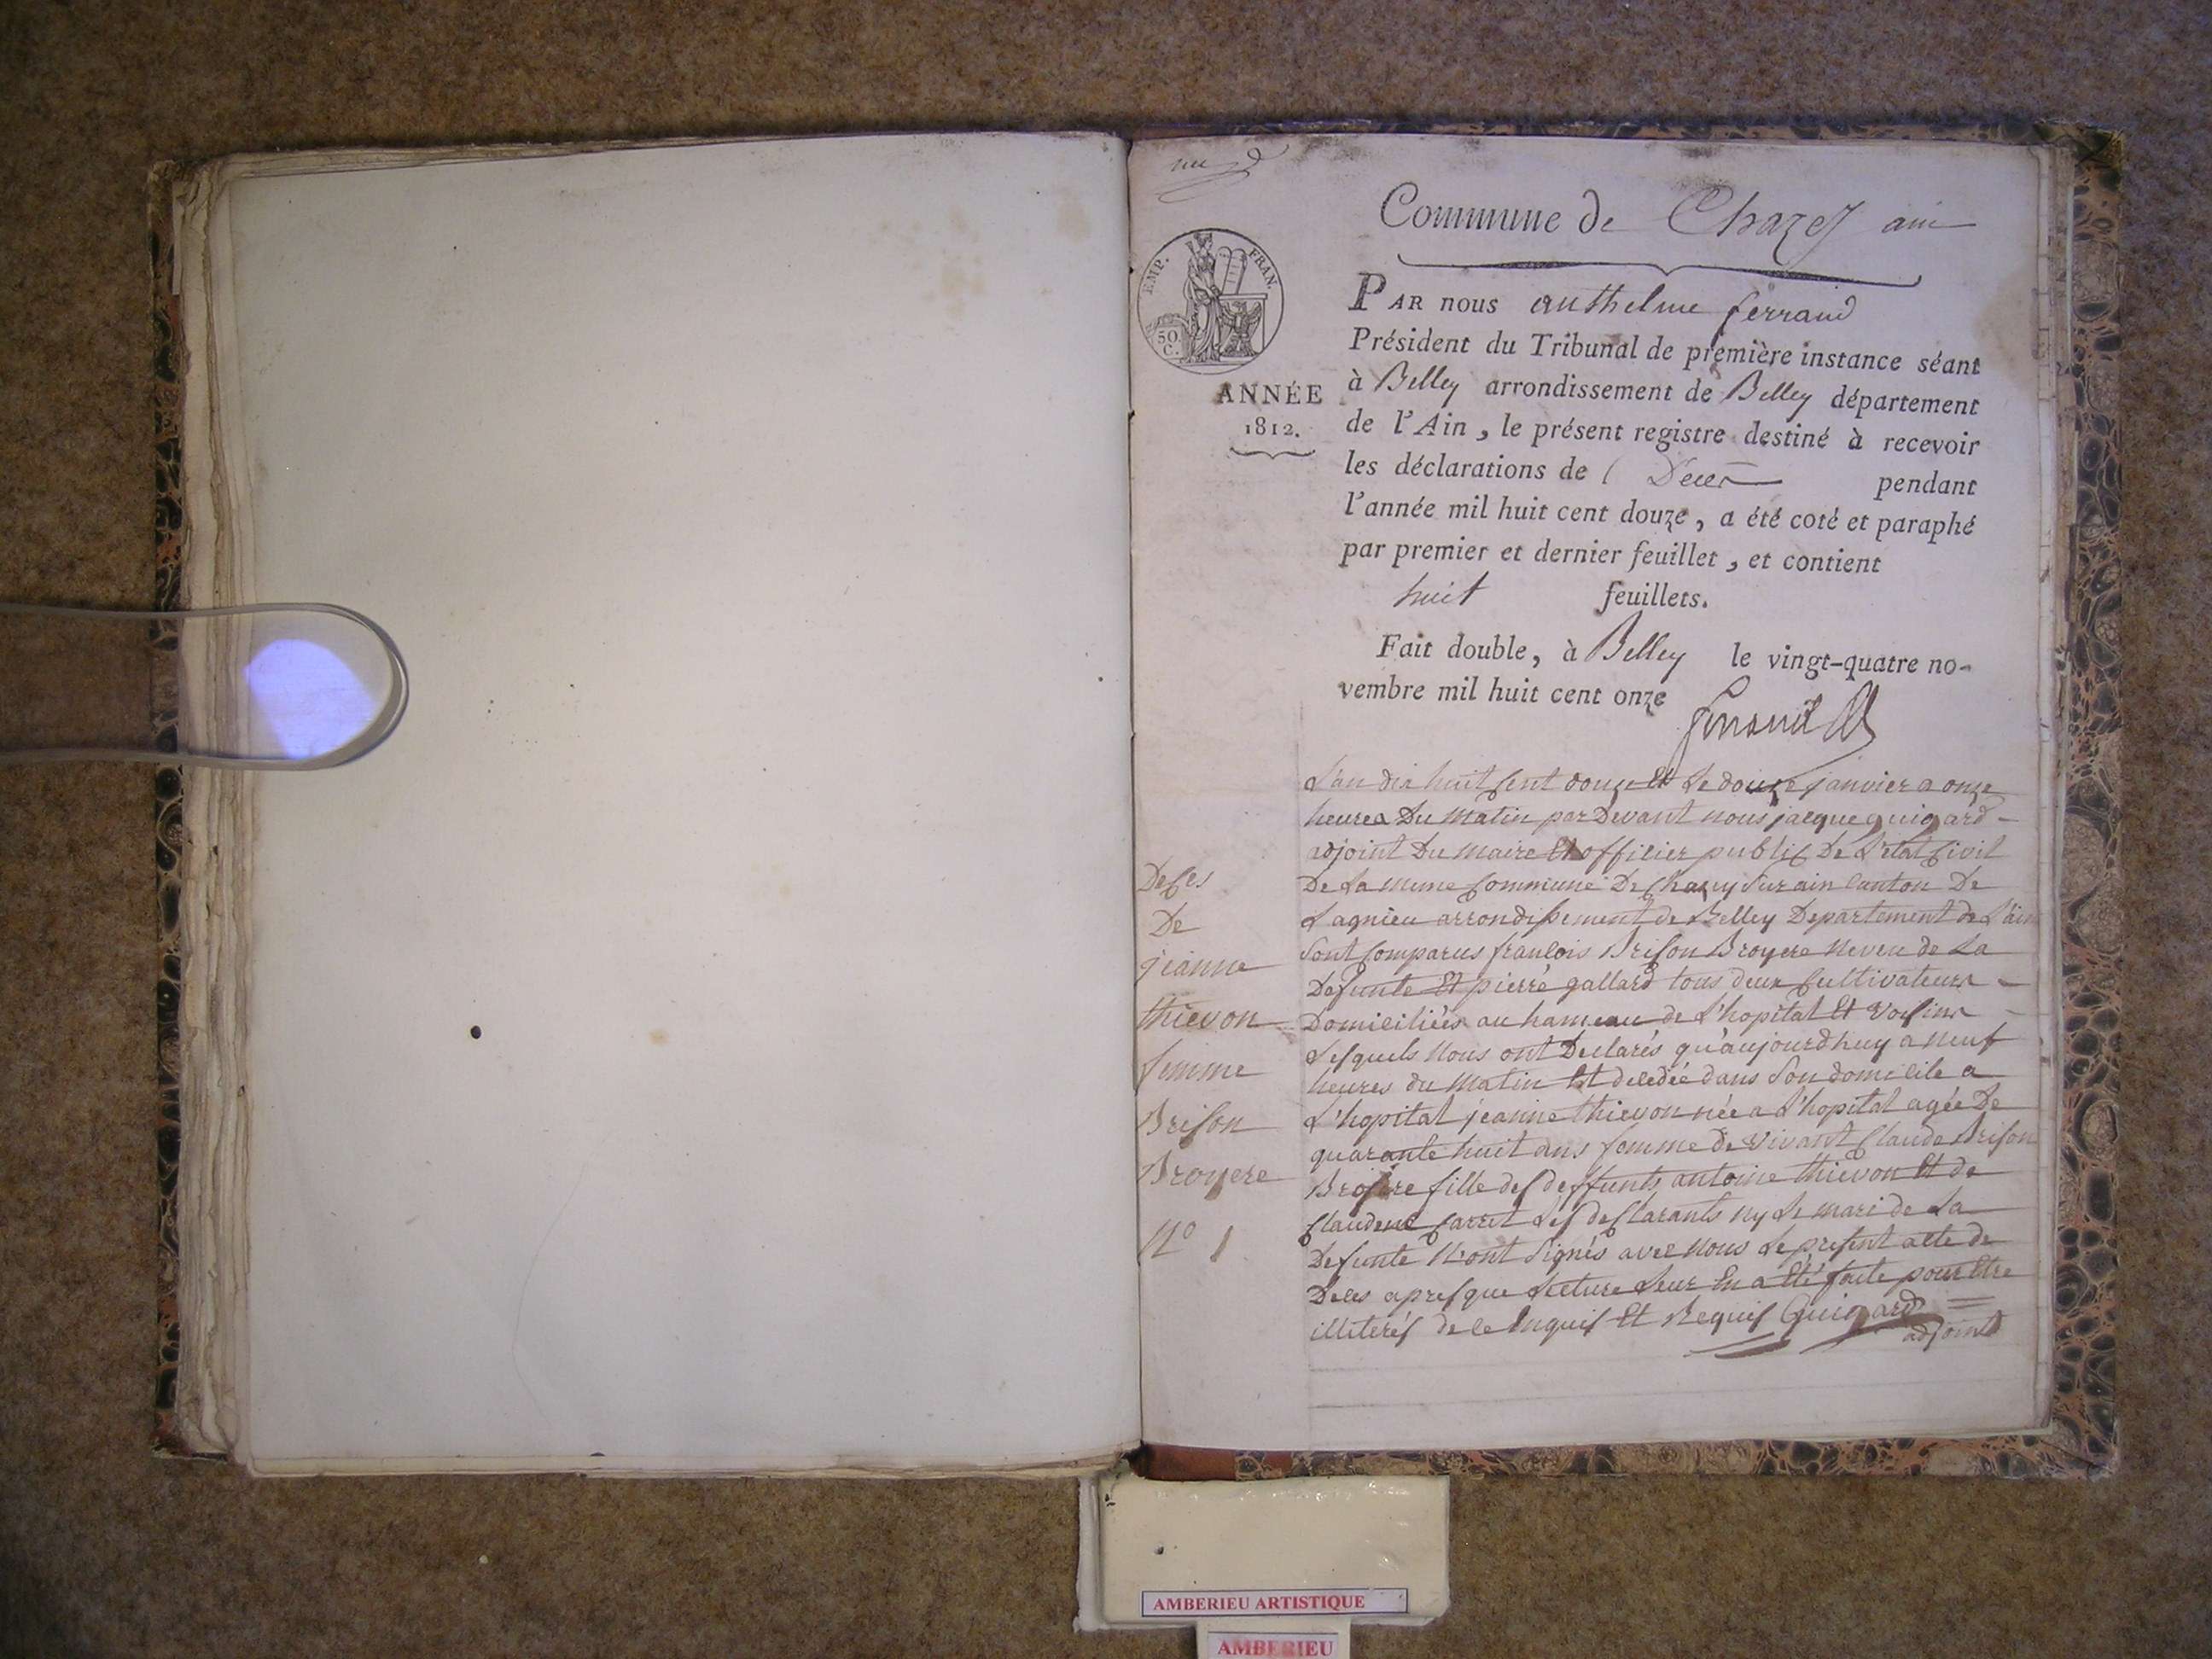 Commune de Chazey ain
EMP. FRAN.
50 C.
ANNÉE
1812.
PAR nous anthelme ferrand
Président du Tribunal de première instance séant
à Belley arrondissement de Belley département
de l'Ain, le présent registre destiné à recevoir
les déclarations de Decès pendant
l'année mil huit cent douze, a été coté et paraphé
par premier et dernier feuillet, et contient
huit feuillets.
Fait double, à Belley le vingt-quatre no-
vembre mil huit cent onze
Ferrand
Deces
De
jeanne
thievon
femme
Brison
Broyere
N° 1
L'an dix huit cent douze et Le douze janvier a onze
heures Du Matin par Devant nous jacque guigard
adjoint Du Maire Et officier public De L'etat Civil
De La meme Commune De Chazey Sur ain Canton De
Lagnieu arrondissement de Belley Departement de L'ain
Sont Comparus francois Brison Broyere Neveu de La
Defunte Et pierre gallard tous deux Cultivateurs
Domiciliés au hameau de L'hopital Et Voisins
Lesquels Nous ont Declarés qu'aujourdhuy a neuf
heures du Matin Est decedée dans Son domicile a
L'hopital jeanne thievon née a L'hopital agée De
quarante huit ans femme de vivant Claude Brison
Broyere fille des deffunts antoine thievon Et de
Claudene Carret Les desclarants ny Le mari de La
Defunte N'ont Signés avec Nous Le present acte de
Deces apres que Lecture Leur En a Eté faite pour Etre
illiterés de ce Enquis Et Requis Guigard
adjoint
AMBERIEU ARTISTIQUE
AMBERIEU